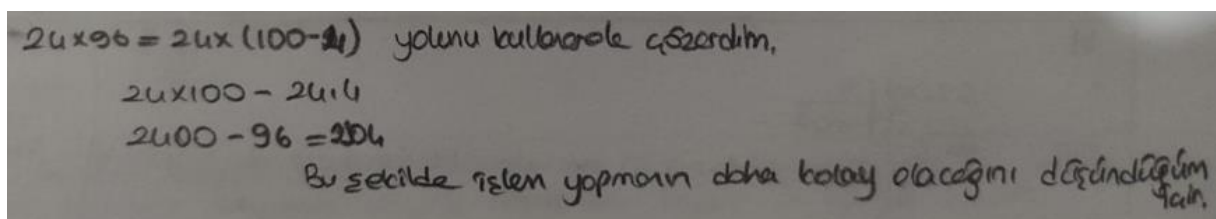 24x96 = 24x(100-4) yolunu kullanarak çözerdim,
24x100 - 24.4
2400 - 96 = 2304
Bu şekilde işlem yapmanın daha kolay olacağını düşündüğüm
için.